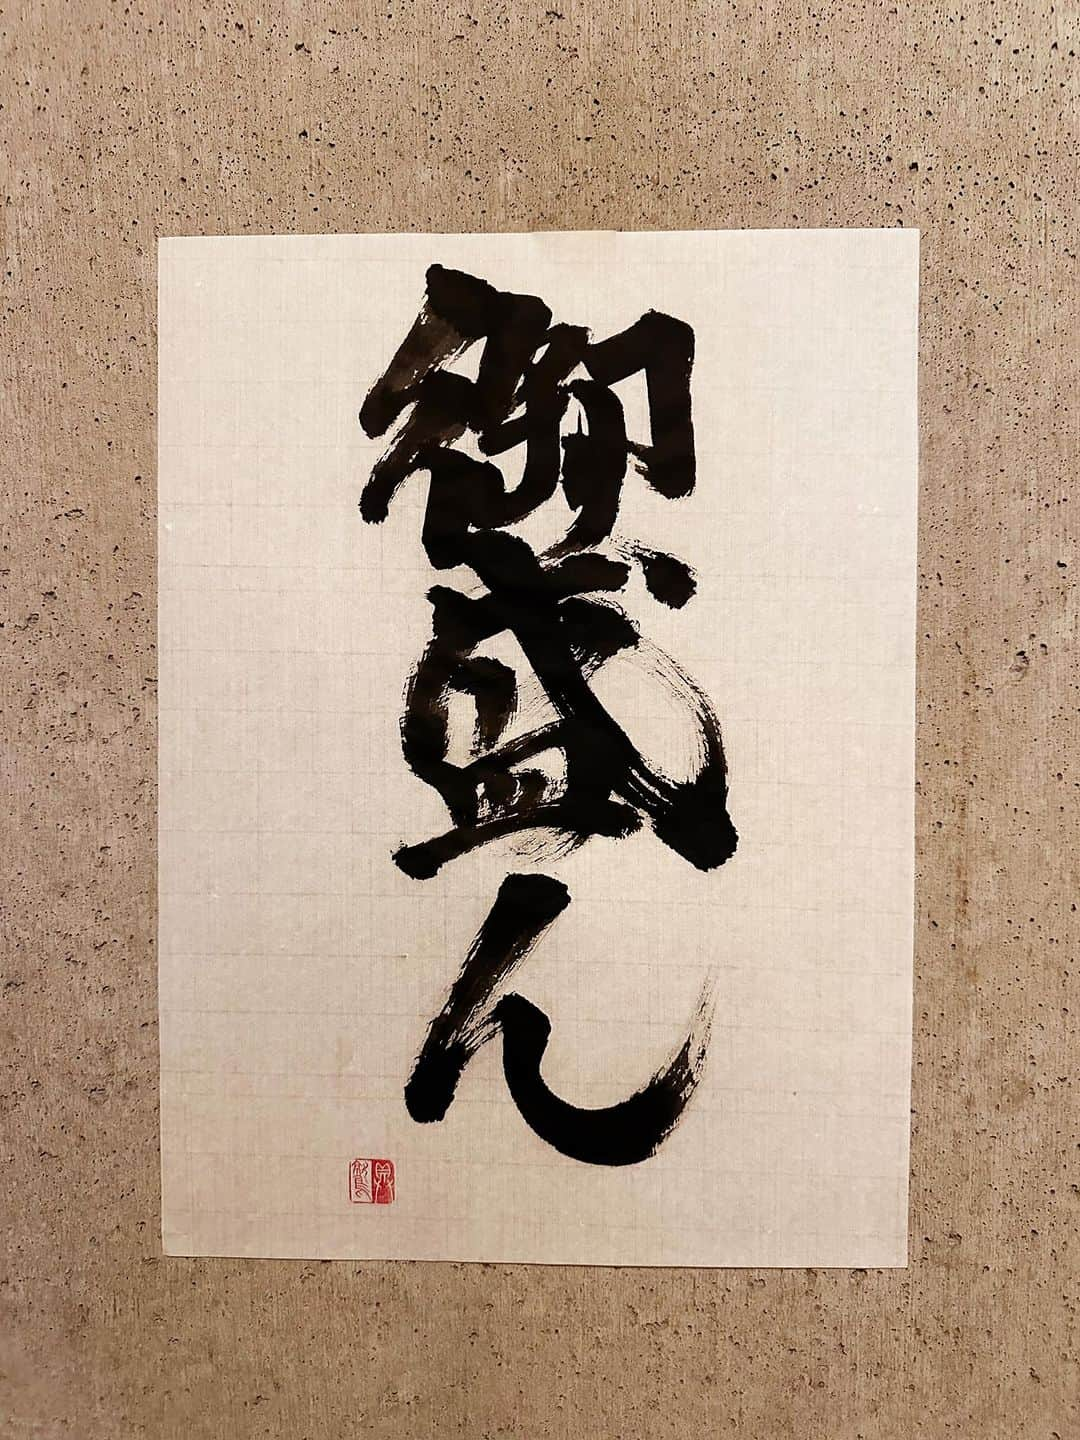 御盛ん